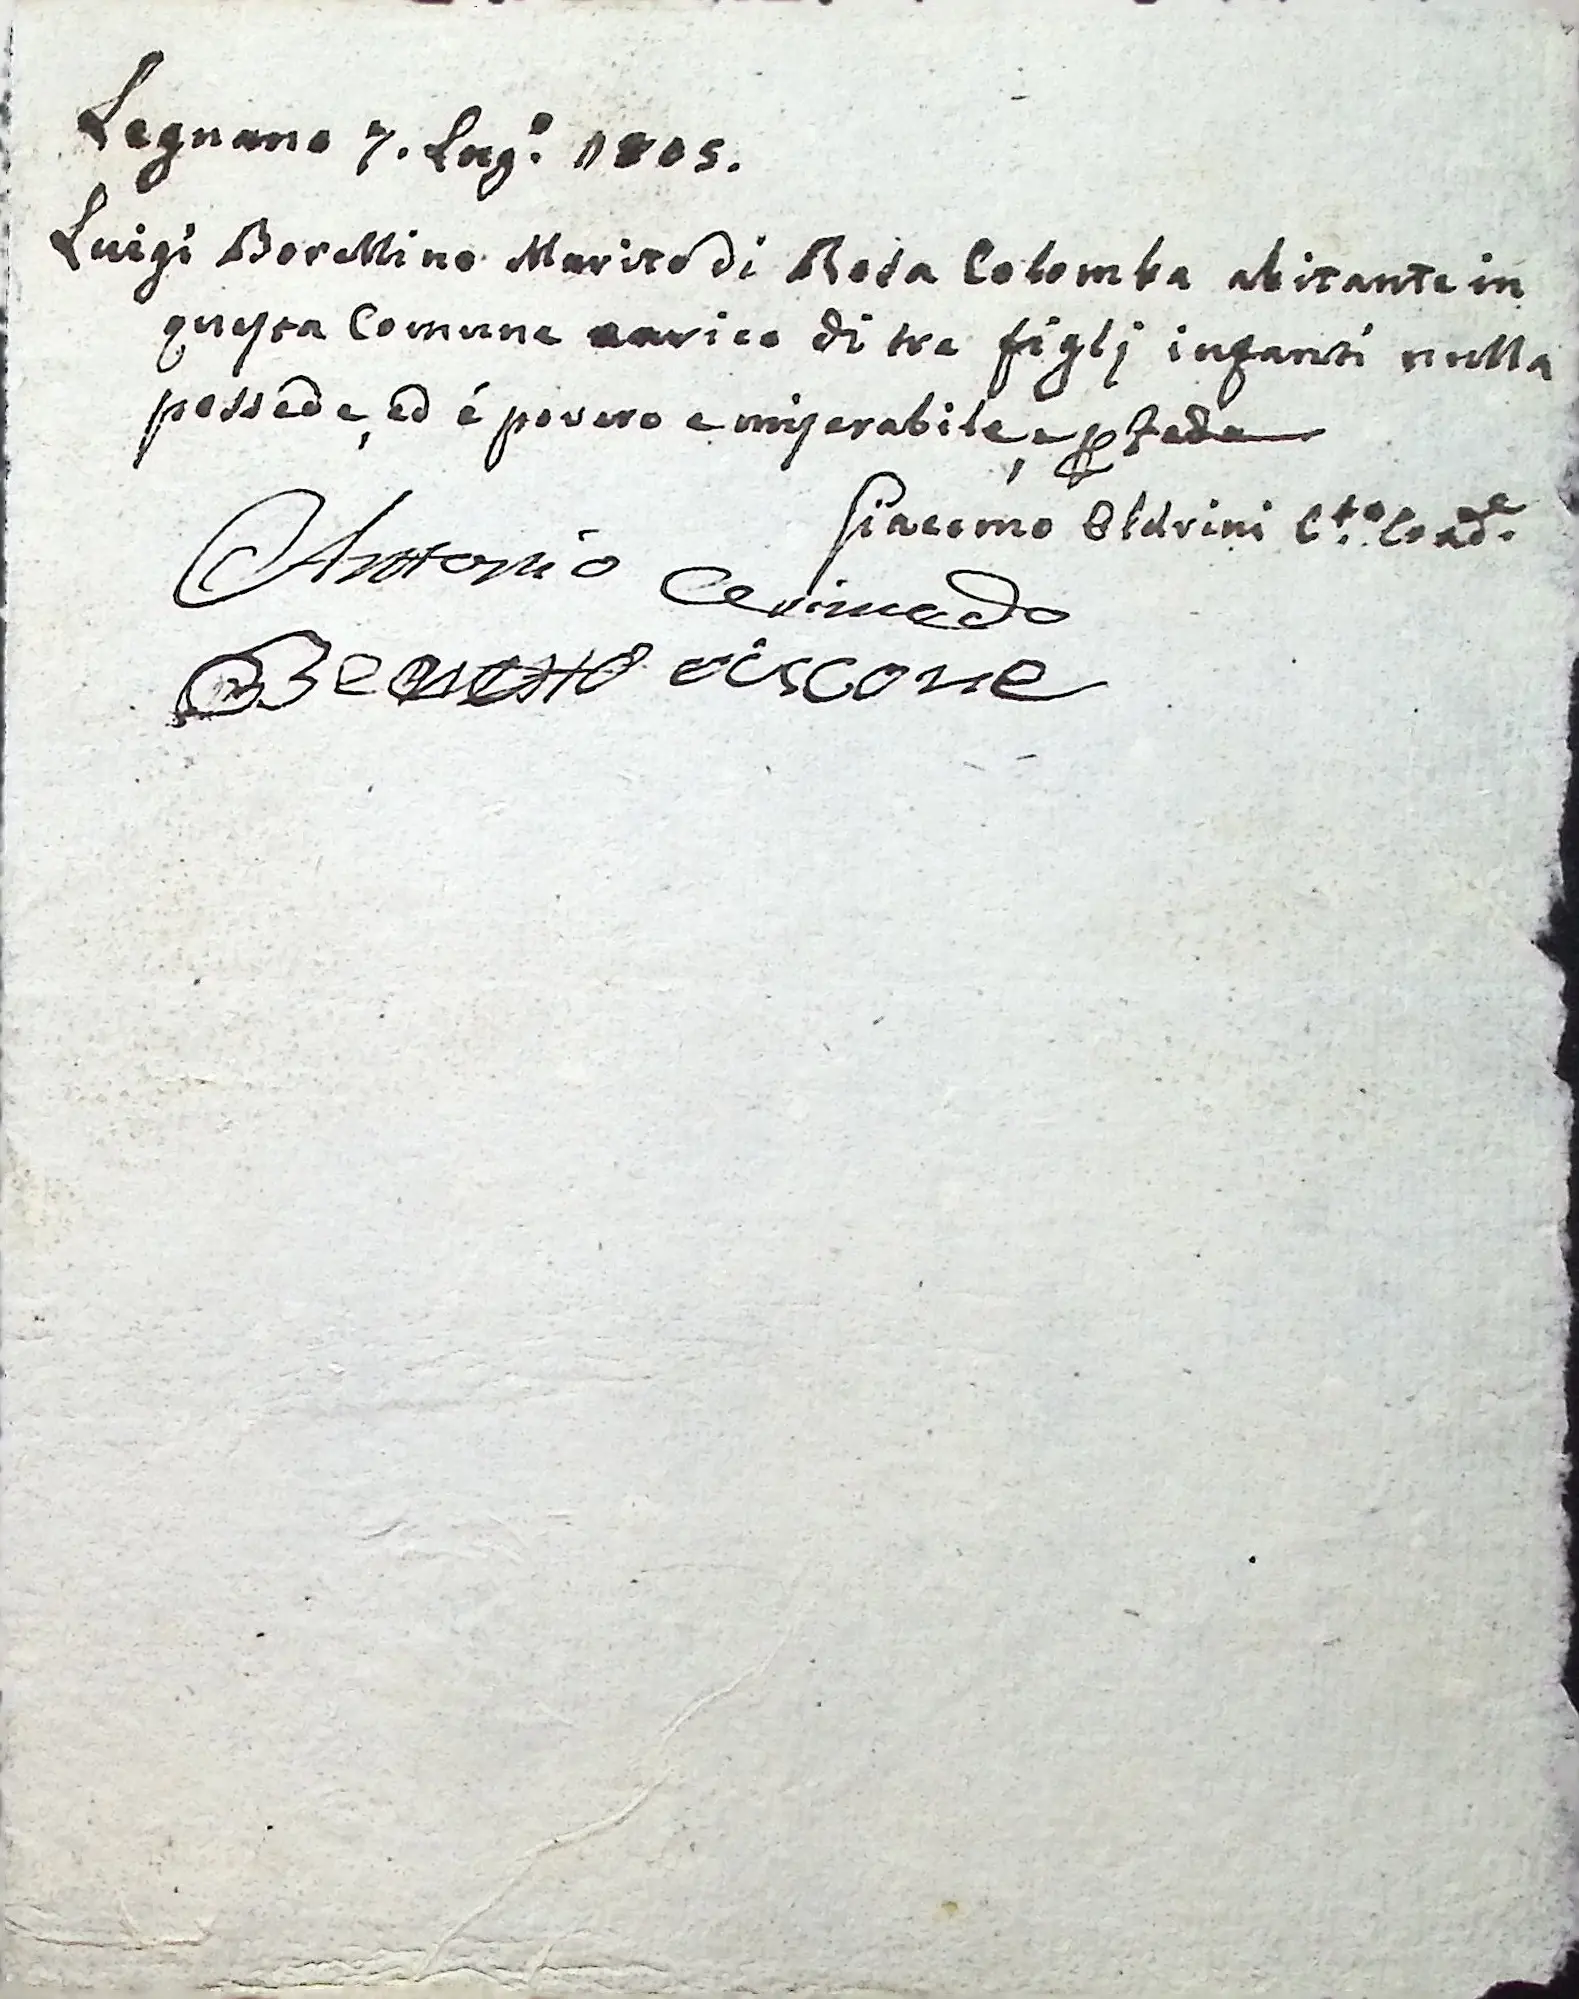 Legnano 7. Lug.º 1805.
Luigi Borellino Marito di Rosa Colomba abitante in
questa Comune carico di tre figlj infanti nulla
possede, ed é povero e miserabile, e p fede
Giacomo Eldrini C.to Coad.e
Antonio
Benedetto viscone